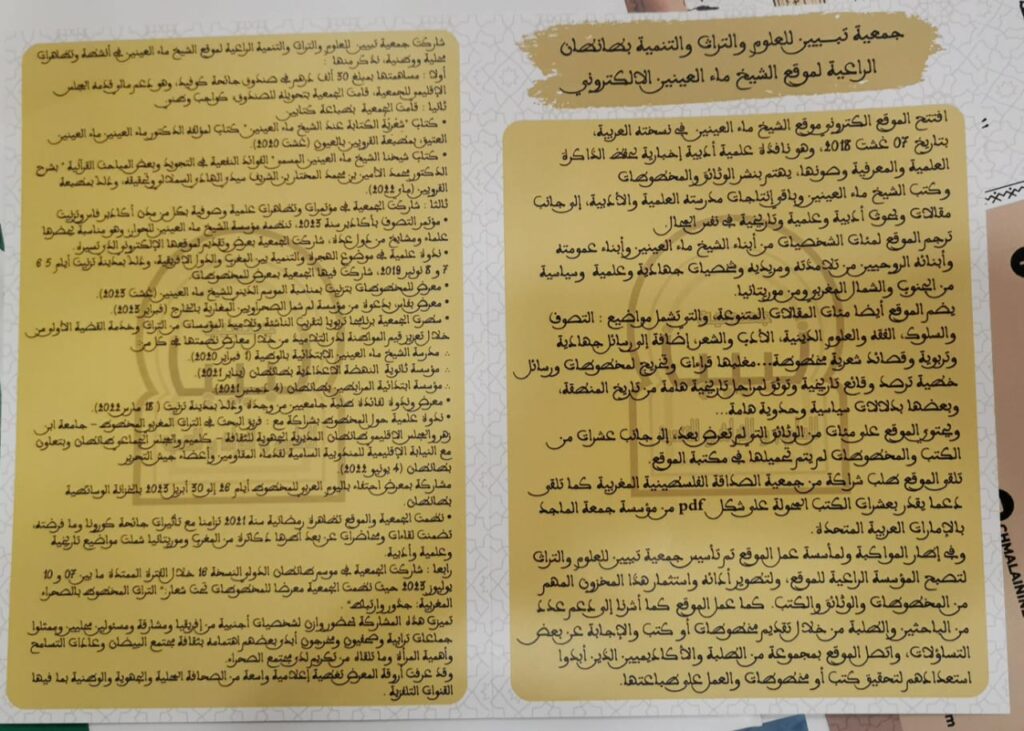 جمعية تبيين للعلوم والتراث والتنمية بطانطان
الراعية لموقع الشيخ ماء العينين الالكتروني
افتتح الموقع الكتروني موقع الشيخ ماء العينين في نسخته العربية،
بتاريخ 07 غشت 2018، وهو نافذة علمية أدبية إخبارية لحفظ الذاكرة
العلمية والمعرفية وصونها، يهتم بنشر الوثائق والمخطوطات
وكتب الشيخ ماء العينين وباقي إنتاجات مدرسته العلمية والأدبية، إلى جانب
مقالات وبحوث أدبية وعلمية وتاريخية في نفس المجال
ترجم الموقع لمئات الشخصيات من أبناء الشيخ ماء العينين وأبناء عمومته
وأبنائه الروحيين من تلامذته ومريديه وشخصيات جهادية وعلمية وسياسية
من الجنوب والشمال المغربي ومن موريتانيا.
يضم الموقع أيضا مئات المقالات المتنوعة، والتي تشمل مواضيع : التصوف
والسلوك، الفقه والعلوم الدينية، الأدب والشعر، إضافة إلى رسائل جهادية
وتربوية وقصائد شعرية مخطوطة... معظمها قراءات وتخريج لمخطوطات ورسائل
خطية ترصد وقائع تاريخية وتوثق لمراحل تاريخية هامة من تاريخ المنطقة،
وبعضها بدلالات سياسية وحدوية هامة...
ويحتوي الموقع على مئات من الوثائق التي لم تعرض بعد، إلى جانب عشرات من
الكتب والمخطوطات لم يتم تحميلها في مكتبة الموقع.
تلقى الموقع طلب شراكة من جمعية الصداقة الفلسطينية المغربية كما تلقى
دعما يقدر بعشرات الكتب المحولة على شكل pdf من مؤسسة جمعة الماجد
بالإمارات العربية المتحدة.
وفي إطار المواكبة ولمأسسة عمل الموقع تم تأسيس جمعية تبيين للعلوم والتراث
لتصبح المؤسسة الراعية للموقع، ولتطوير أدائه واستثمار هذا المخزون المهم
من المخطوطات والوثائق والكتب. كما عمل الموقع كما أشرنا إلى دعم عدد
من الباحثين والطلبة من خلال تقديم مخطوطات أو كتب والإجابة عن بعض
التساؤلات، واتصل الموقع بمجموعة من الطلبة والأكاديميين الذين أبدوا
استعدادهم لتحقيق كتب أو مخطوطات والعمل على طباعتها.
شاركت جمعية تبيين للعلوم والتراث والتنمية الراعية لموقع الشيخ ماء العينين في أنشطة وتظاهرات
محلية ووطنية، نذكر منها :
أولا : مساهمتها بمبلغ 30 ألف درهم في صندوق جائحة كوفيد، وهو دعم مالي قدمه المجلس
الإقليمي للجمعية، قامت الجمعية بتحويله للصندوق كواجب وطني
ثانيا : قامت الجمعية بطباعة كتابين
• كتاب "شعرية الكتابة عند الشيخ ماء العينين" كتاب لمؤلفه الدكتور ماء العينين ماء العينين
العتيق بمطبعة القرويين بالعيون (غشت 2020).
• كتاب شيخنا الشيخ ماء العينين المسمى "الفوائد النفعية في التجويد وبعض المباحث القرآنية" بشرح
الدكتور محمد الأمين بن محمد المختار بن الشريف سيدي الهادي السملالي وتحقيقه، وذلك بمطبعة
القرويين (ماي 2022).
ثالثا : شاركت الجمعية في مؤتمرات وتظاهرات علمية وصوفية بكل من مدن أكادير فاس وتيزنيت
• مؤتمر التصوف بأكادير سنة 2023، تنظمه مؤسسة الشيخ ماء العينين للحوار، وهو مناسبة يحضرها
علماء ومشايخ من دول عدة، شاركت الجمعية بعرض وتقديم لموقعها الإلكتروني الذي تسيره.
• ندوة علمية في موضوع الهجرة والتنمية بين المغرب والدول الإفريقية، وذلك بمدينة تزنيت أيام 5 6
7 و 8 نونبر 2019، شاركت فيها الجمعية بمعرض للمخطوطات
• معرض للمخطوطات بتزنيت بمناسبة الموسم الديني للشيخ ماء العينين (غشت 2023).
• معرض بفاس بدعوة من مؤسسة لم شمل الصحراويين المغاربة بالخارج (فبراير 2023).
• سطرت الجمعية برنامجا تربويا لتقريب الناشئة وتلاميذ المؤسسات من التراث وخدمة القضية الأولى من
خلال تعزيز قيم المواطنة لدى التلاميذ من خلال معارض نظمتها في كل من
∴ مدرسة الشيخ ماء العينين الابتدائية بالوطية (1 فبراير 2020).
∴ مؤسسة ثانوية النهضة الاعدادية بطانطان (يناير 2021).
∴ مؤسسة ابتدائية المرابطين بطانطان (4 دجنبر 2021).
• معرض وندوة لفائدة طلبة جامعيين من وجدة وذلك بمدينة تزنيت ( 18 مارس 2022).
• ندوة علمية حول المخطوط بشراكة مع : فريق البحث في التراث المغربي المخطوط - جامعة ابن
زهر والمجلس الإقليمي طانطان المديرية الجهوية للثقافة - كلميم والمجلس الجماعي طانطان وبتعاون
مع النيابة الإقليمية للمندوبية السامية لقدماء المقاومين وأعضاء جيش التحرير
بطانطان (4 يوليوز 2022).
مشاركة بمعرض احتفاء باليوم العربي للمخطوط أيام 26 إلى 30 أبريل 2023 بالخزانة الوسائطية
بطانطان.
• نظمت الجمعية والموقع تظاهرة رمضانية سنة 2021 تزامنا مع تأثيرات جائحة كورونا وما فرضته،
تضمنت لقاءات ومحاضرات عن بعد أطرها دكاترة من المغرب وموريتانيا شملت مواضيع تاريخية
وعلمية وأدبية.
رابعا : شاركت الجمعية في موسم طانطان الدولي النسخة 16 خلال الفترة الممتدة ما بين 07 و 10
يوليوز 2023 حيث نظمت الجمعية معرضا للمخطوطات تحت شعار: "التراث المخطوط بالصحراء
المغربية: جذور وارتباط" .
تميزت هذه المشاركة بحضور وازن لشخصيات أجنبية من إفريقيا ومشارقة ومسئولين محليين وممثلي
جماعات ترابية وصحفيون ومخرجون أبدى بعضهم اهتمامه بثقافة مجتمع البيضان وعادات التسامح
وأهمية المرأة وما تلقاه من تكريم لدى مجتمع الصحراء.
وقد عرفت أروقة المعرض تغطية إعلامية واسعة من الصحافة المحلية والجهوية والوطنية بما فيها
القنوات التلفزية .
CHMALAININ